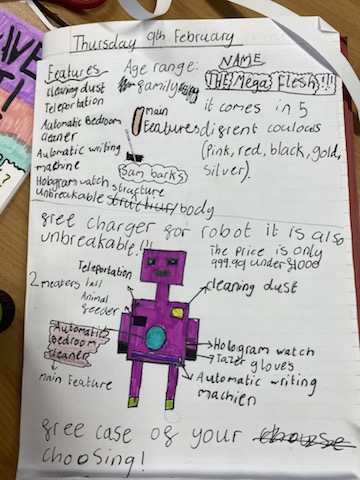 Thursday 9th February
Features
cleaning dust
Teleportation
Automatic Bedroom
cleaner
Automatic writing
machine
Hologram watch
unbreakable structure/body
Age range:
family
main
features
Sam barks
structure
NAME
THE Mega Flesh!!!
it comes in 5
digrent coulours
(pink, red, black, gold,
silver).
free charger for robot it is also
unbreakable!!!
The price is only
999.99 under £1000
Teleportation
2 meaters tall
Animal
feeder
Automatic
bedroom
cleaner
main feature
cleaning dust
Hologram watch
Tazer gloves
Automatic writing
machien
free case of your choose
choosing!